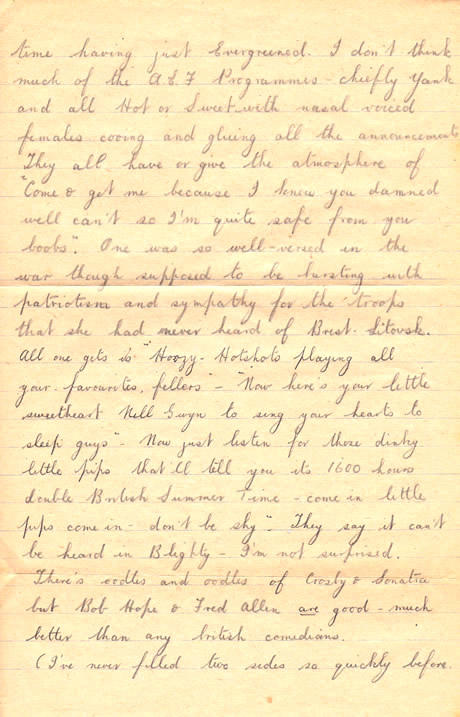 time having just Evergreened. I don't think
much of the A.E.F Programmes - chiefly Yank
and all Hot or Sweet with nasal voiced
females cooing and glueing all the announcements
They all have or give the atmosphere of
"Come & get me because I know you damned
well can't so I'm quite safe from you
boobs". One was so well-versed in the
war though supposed to be bursting with
patriotism and sympathy for the troops
that she had never heard of Brest-Litovsk.
All one gets is "Hoozy-Hotshots playing all
your favourites, fellers" - "Now here's your little
sweetheart Nell Gwyn to sing your hearts to
sleep guys" - Now just listen for those dinky
little pips that'll tell you its 1600 hours
double British Summer Time - come in little
pips come in - don't be shy". They say it can't
be heard in Blighty - I'm not surprised.
There's oodles and oodles of Crosby & Sonatra
but Bob Hope & Fred Allen are good - much
better than any british comedians.
(I've never filled two sides so quickly before.